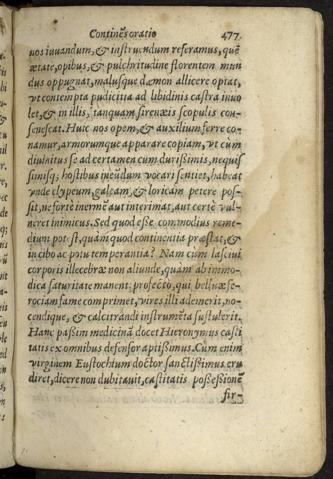 Continẽs oratio 477.
uos iuuandum, & instruendum referamus, quẽ
ætate, opibus, & pulchritudine florentem mun
dus oppugnat, malusque dæmon allicere optat,
ut contempta pudicitia ad libidinis castra inuo
let, & in illis, tanquam sirenæis scopulis con-
senescat. Huic nos opem, & auxilium ferre co-
namur, armorumque apparare copiam, ut cum
diuinitus se ad certamen cum durißimis, nequis
simisq; hostibus ineũdum uocari sentiet, habeat
unde clypeum, galeam, & loricam petere pos-
sit, ne forte inermẽ aut interimat, aut certè uul-
neret inimicus. Sed quod eße commodius reme-
dium potest, quàm quod continentia præstat, &
in cibo ac potu temperantia? Nam cùm lasciui
corporis illecebræ non aliunde, quàm ab immo-
dica saturitate manent: profectò, qui belluæ fe-
rociam fame comprimet, uires illi ademerit, no-
cendique, & calcitrandi instrumẽta sustulerit.
Hanc paßim medicinã docet Hieronymus casti
tatis ex omnibus defensor aptißimus. Cùm enim
uirginem Eustochium doctor sanctißimus eru
diret, dicere non dubitauit, castitatis poßeßionẽ
fir-